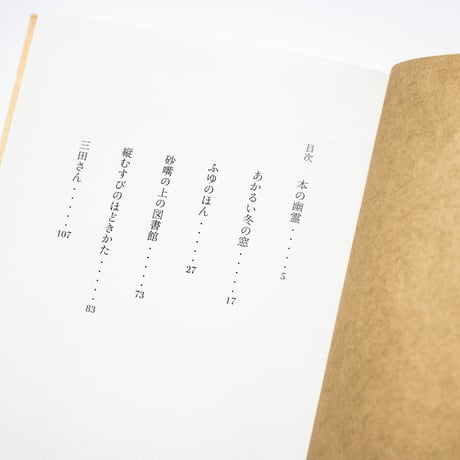 目次　本の幽霊・・・・・・5
あかるい冬の窓・・・・・・17
ふゆのほん・・・・・・27
砂嘴の上の図書館・・・・・・73
縦むすびのほどきかた・・・・・・83
三田さん・・・・・・107